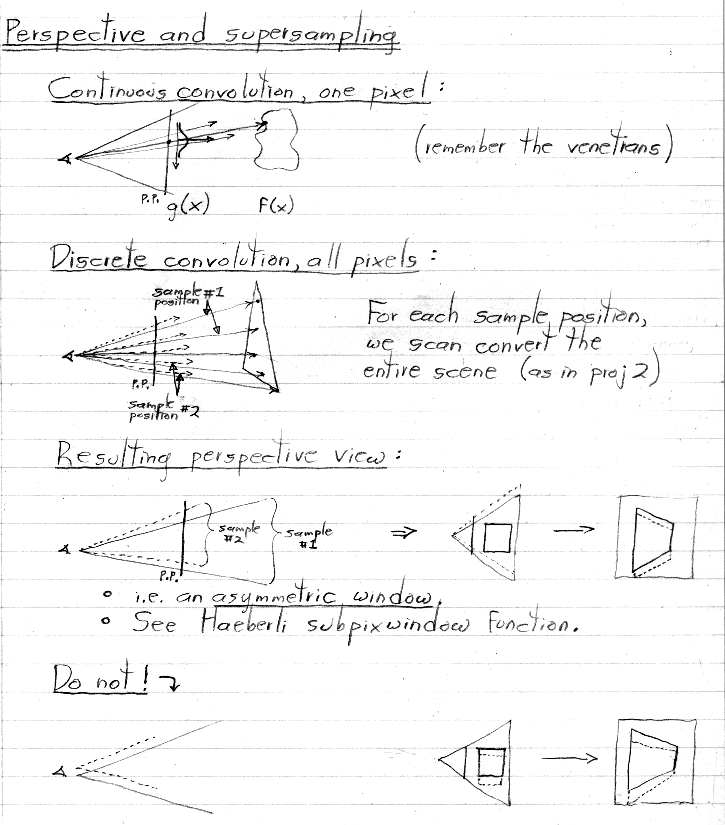 Perspective and supersampling
Continuous convolution, one pixel:
(remember the venetians)
P.P.
g(x)
F(x)
Discrete convolution, all pixels:
sample #1
position
For each sample position,
we scan convert the
entire scene (as in proj 2)
P.P.
sample #2
position
Resulting perspective view:
sample
#2
sample
#1
P.P.
• i.e. an asymmetric window.
• See Haeberli subpixwindow function.
Do not!